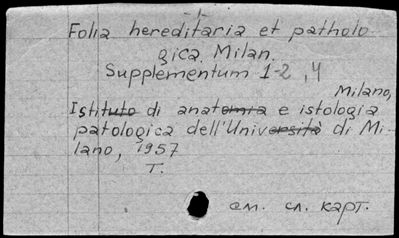 Folia hereditaria et patholo-
gica. Milan.
Supplementum 1-2, 4
Milano,
Istituto di anatomia e istologia
patologica dell'Università di Mi-
lano, 1957
T.
см. сл. карт.